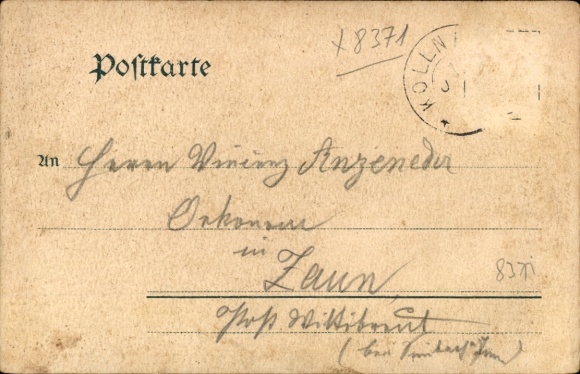 x 8371
Postkarte
KOLLN
An Herrn Vincenz Anzeneder
Oekonom
in
Zaun,
8371
Post Wittibreut
(bei Simbach Inn)